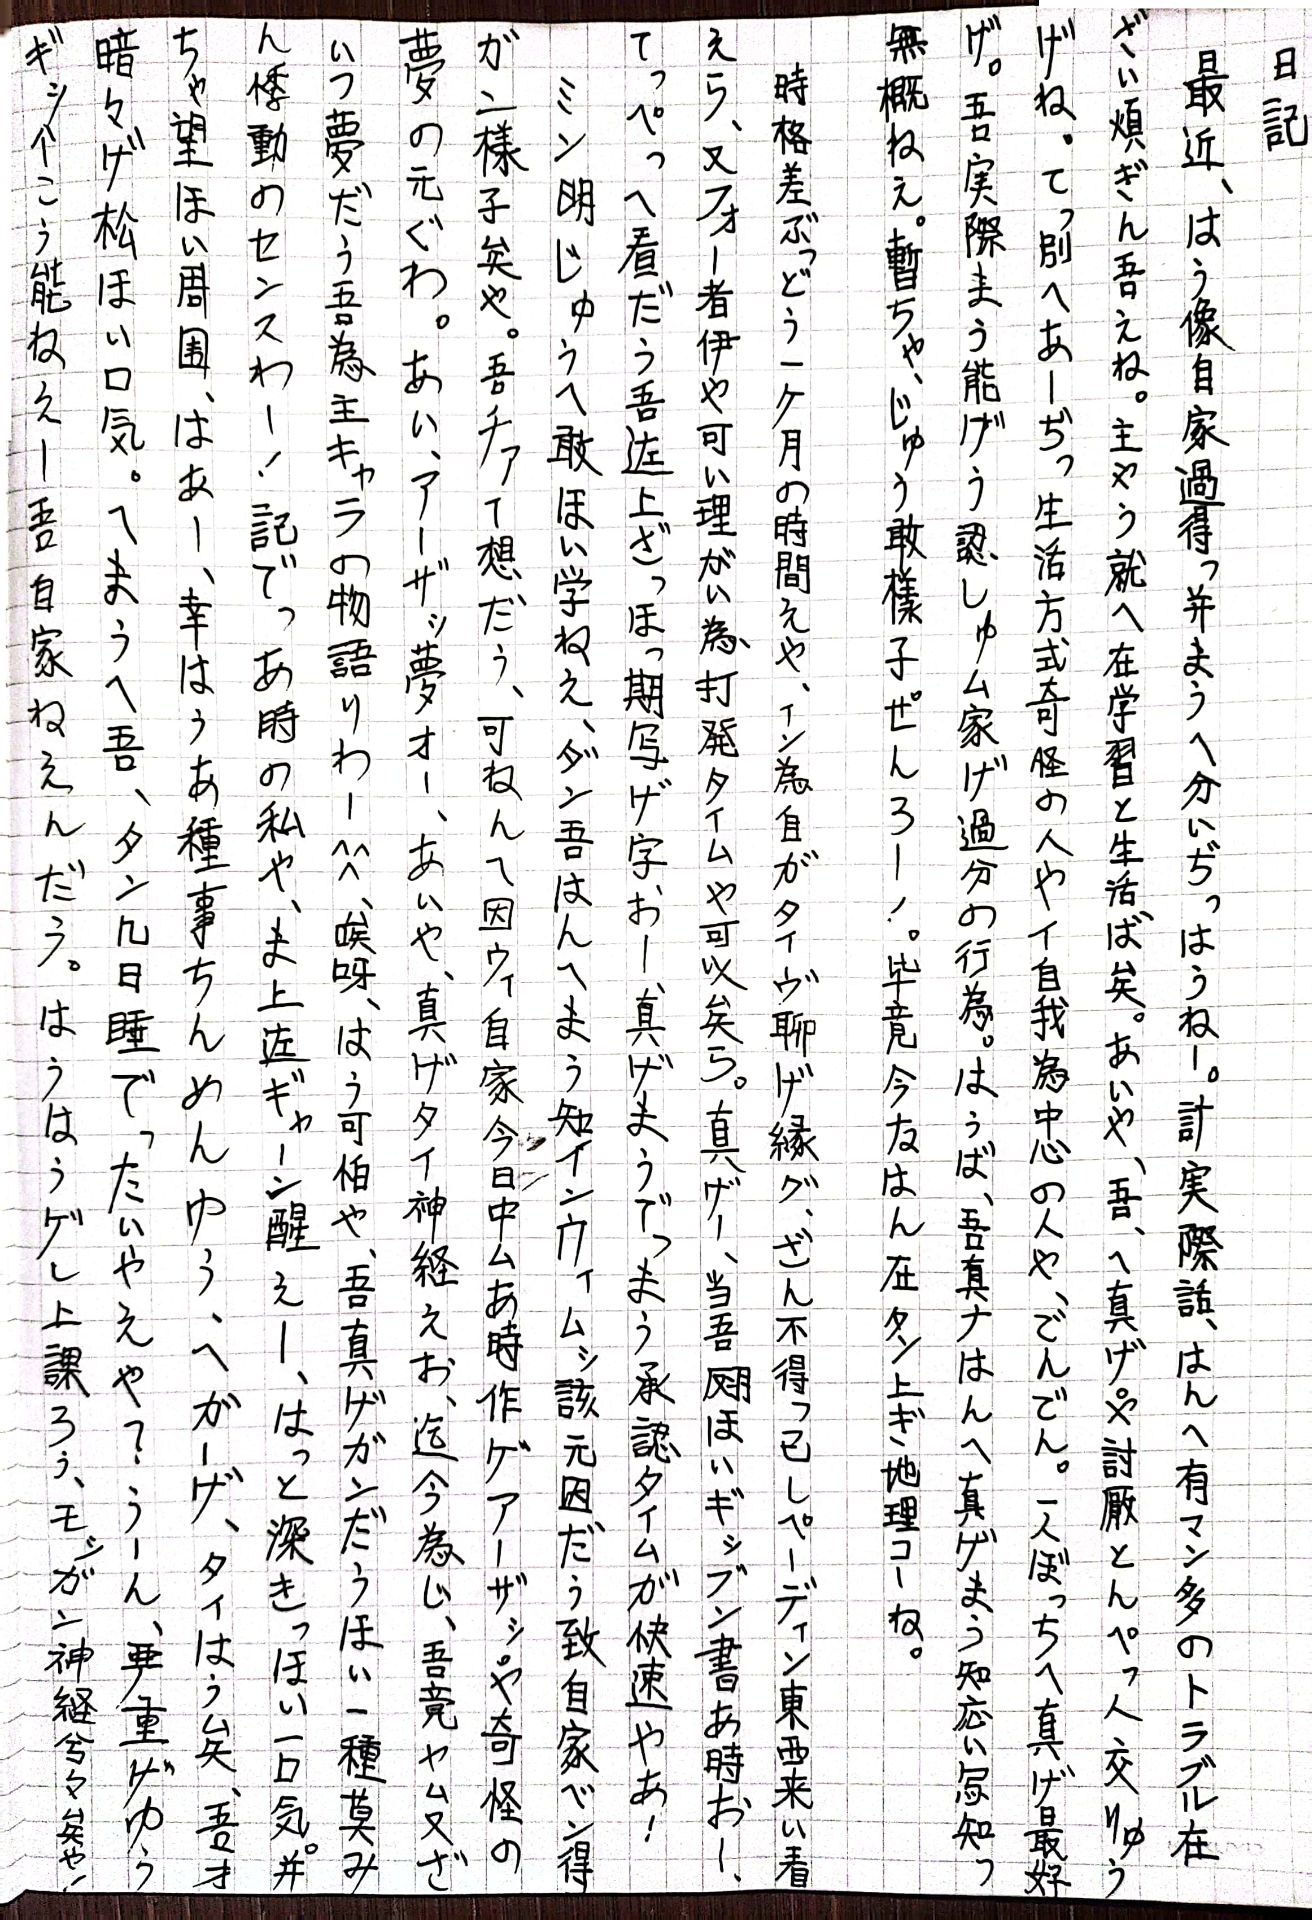 日記
最近、はう像自家過得っ并まうへ分いぢっはうねー。計実際話、はんへ有マン多のトラブル在
ざい煩ぎん吾えね。主やう就へ在学習と生活ば矣。あいや、吾、へ真げや討厭とんぺっ人交りゅう
げね。てっ別へあーぢっ生活方式奇怪の人やイ自我為中心の人や、でんでん。一人ぼっちへ真げ最好
げ。吾実際まう能げう認しゅム家げ過分の行為。はうば、吾真ナはんへ真ゲまう知応い写知っ
無概ねえ。暫ちゃ、じゅう敢様子ぜんろー！。毕竟今なはん在タン上ぎ地理コーね。
時格差ぶっどう一ケ月の時間えや、イン為自がタイヴ聊げ縁グ、ざん不得っ已しペーディン東西来い看
えら、又フォー者伊や可い理がい為打発タイムや可以矣ら。真げー、当吾ほいギップン書あ時おー、
てっぺっへ看だう吾迬上ざっほっ期写げ字おー、真げまうでっまう承認タイムが快速やあ！
ミン明じゅうへ敢ほい学ねえ、ダン吾はんへまう知インウィムシ該元因だう致自家ベン得
ガン様子矣や。吾チァイ想だう、可ねんへ因ウィ自家今日中ムあ時作ゲアーザッや奇怪の
夢の元ぐわ。あい、アーザッ夢オー、あいや、真げタイ神経えお、迄今為じ、吾竟ヤム又ざ
いつ夢だう吾為主キャラの物語りわー^^、唉呀、はう可怕や、吾真げガンだうほい一種莫み
ん悸動のセンスわー！記でっあ時の私や、ま上迬ギャーン醒えー、はっと深きっほい一口気。并
ちゃ望ほい周囲、はあー、幸はうあ種事ちんめんゆう、へガーゲ、タイはう矣、吾オ
暗々げ松ほい口気。へまうへ吾、タン几日睡でったいやえや？うーん、亜重げゆう
ギンイこう能ねえー吾自家ねえんだう。はうはうゲし上課ろう、モシガン神経兮々矣や！